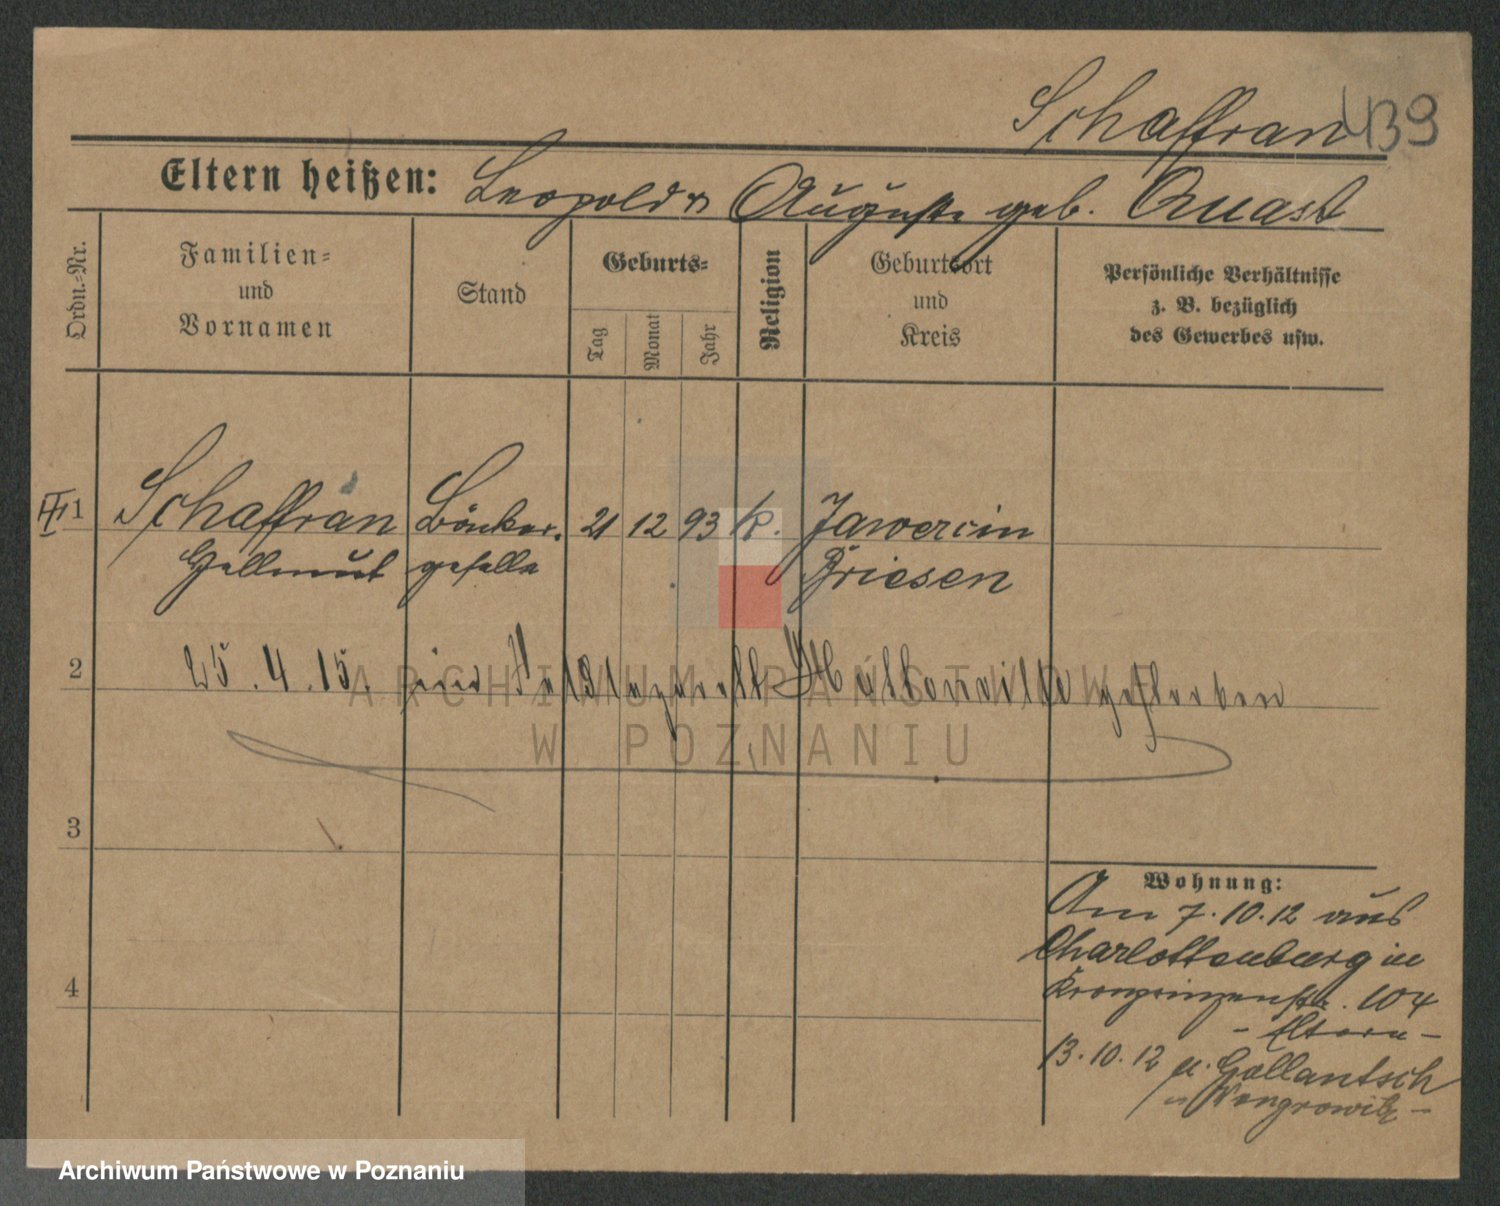 Schaffran 439
Eltern heißen: Leopold u Auguste geb. Quast
Ordn.-Nr.
Familien-
und
Vornamen
Stand
Geburts-
Tag
Monat
Jahr
Religion
Geburtsort
und
Kreis
Persönliche Verhältnisse
z. B. bezüglich
des Gewerbes usw.
1 Schaffran Bäcker. 21 12 93 k. Jawercin
Hellmut geselle Briesen
2 25.4.15. im Feldlazarett gestorben
3
4
Wohnung:
Am 7.10.12 aus
Charlottenburg in
Kronprinzenstr. 104
- Eltern -
13.10.12 n. Gollantsch
Wongrowitz -
ARCHIWUM PAŃSTWOWE
W POZNANIU
Archiwum Państwowe w Poznaniu